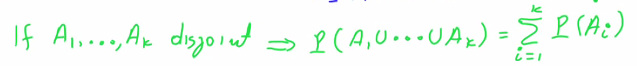 If A₁,...,Aₖ disjoint ⇒ P(A₁∪···∪Aₖ) = ∑ᵢ₌₁ᵏ P(Aᵢ)